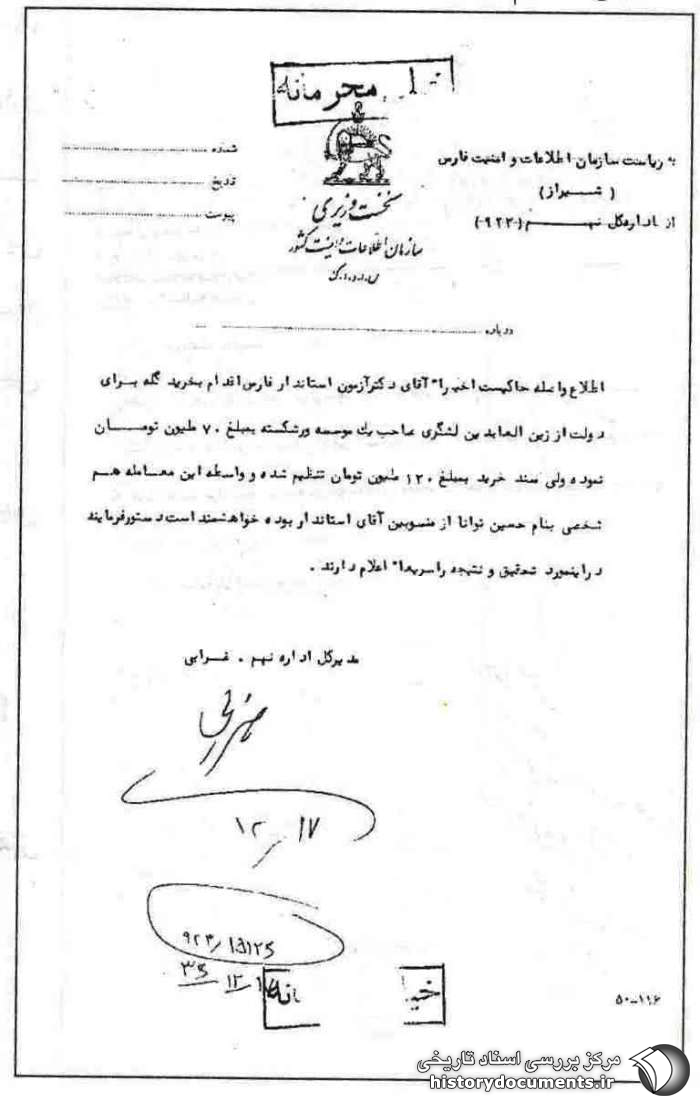 محرمانه
به ریاست سازمان اطلاعات و امنیت فارس
( شیراز )
از اداره کل نهم (۹۲۳)
شماره
تاریخ
پیوست
نخست وزیری
سازمان اطلاعات و امنیت کشور
س.ا.و.ا.ک
درباره
اطلاع واصله حاکیست اخیرا" آقای دکتر آزمون استاندار فارس اقدام بخرید گله برای
دولت از زین العابدین لشگری صاحب یک موسسه ورشکسته بمبلغ ۷۰ ملیون تومان
نموده ولی سند خرید بمبلغ ۱۲۰ ملیون تومان تنظیم شده و واسطه این معامله هم
شخصی بنام حسین توانا از منسوبین آقای استاندار بوده خواهشمند است دستور فرمایند
در اینمورد تحقیق و نتیجه را سریعا" اعلام دارند .
مدیرکل اداره نهم . ضرابی
۱۲/۱۷
۹۲۳/
۳۵/۱۲/۱۷
۵۰-۱۱۶
مرکز بررسی اسناد تاریخی
historydocuments.ir